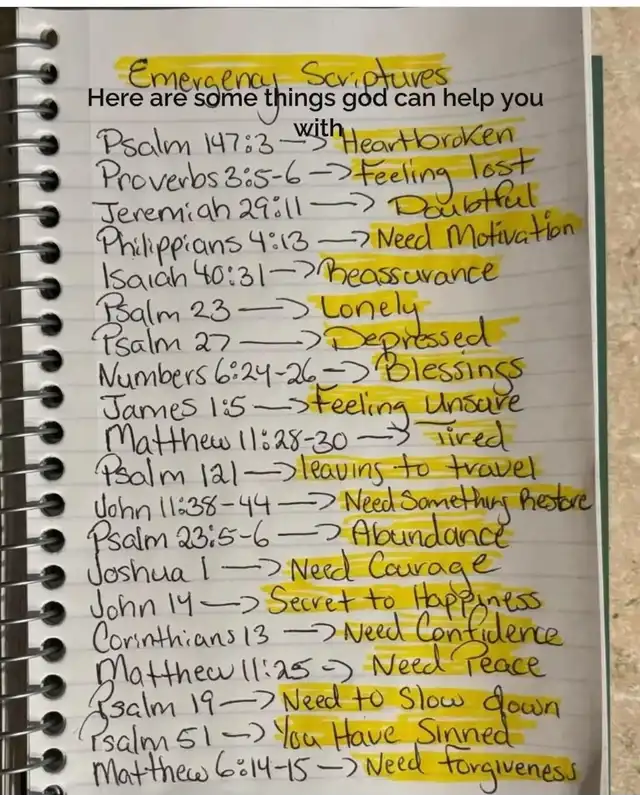 Emergency Scriptures
Here are some things god can help you
with
Psalm 147:3 → Heartbroken
Proverbs 3:5-6 → Feeling lost
Jeremiah 29:11 → Doubtful
Philippians 4:13 → Need Motivation
Isaiah 40:31 → Reassurance
Psalm 23 → Lonely
Psalm 27 → Depressed
Numbers 6:24-26 → Blessings
James 1:5 → Feeling Unsure
Matthew 11:28-30 → Tired
Psalm 121 → leaving to travel
John 11:38-44 → Need Something Restore
Psalm 23:5-6 → Abundance
Joshua 1 → Need Courage
John 14 → Secret to Happiness
Corinthians 13 → Need Confidence
Matthew 11:25 → Need Peace
Psalm 19 → Need to Slow down
Psalm 51 → You Have Sinned
Matthew 6:14-15 → Need forgiveness